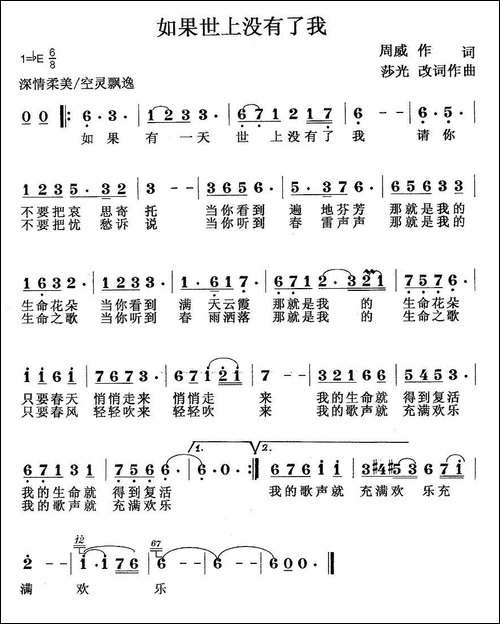 如果世上没有了我
1=♭E 6/8
周威 作 词
莎光 改词作曲
深情柔美/空灵飘逸
0 0 ‖: 6· 3· | 1 2 3 3· | 6 7 1 2 1 7 | 6 - - | 6· 5· |
如 果 有 一 天 世 上没有了 我 请 你
1 2 3 5· 3 2 | 3 - - | 6 5 6 3 3 | 5· 3 2 1 | 6 5 6 3 3 |
不要把哀 思寄 托 当你看到 遍 地芬芳 那就是我的
不要把忧 愁诉 说 当你听到 春 雷声声 那就是我的
1 6 3 2· | 6 1 2 3 3 | 1· 6 1 7· | 6 7 1 2 3 2 1 | 7 5 7 6· |
生命花朵 当你看到 满 天云霞 那就是我 的 生命花朵
生命之歌 当你听到 春 雨洒落 那就是我 的 生命之歌
i i 6 i· | 7 6 7 5· | 6 7 i 2 i | 7 - - | 3 2 1 6 6 | 5 4 5 3· |
只要春天 悄悄走来 悄悄走 来 我的生命就 得到复活
只要春风 轻轻吹来 轻轻吹 来 我的歌声就 充满欢乐
1. 2.
6 7 1 3 1 | 7 5 6 6· | 6· 0· :‖ 6 7 6 i i | 3 #4 5 3 6 7 i |
我的生命就 得到复活 我的歌声就 充满欢 乐充
我的歌声就 充满欢乐
2 - - | i· i 7 6 | 6 - - | 6 0 0 0· ‖
满 欢 乐